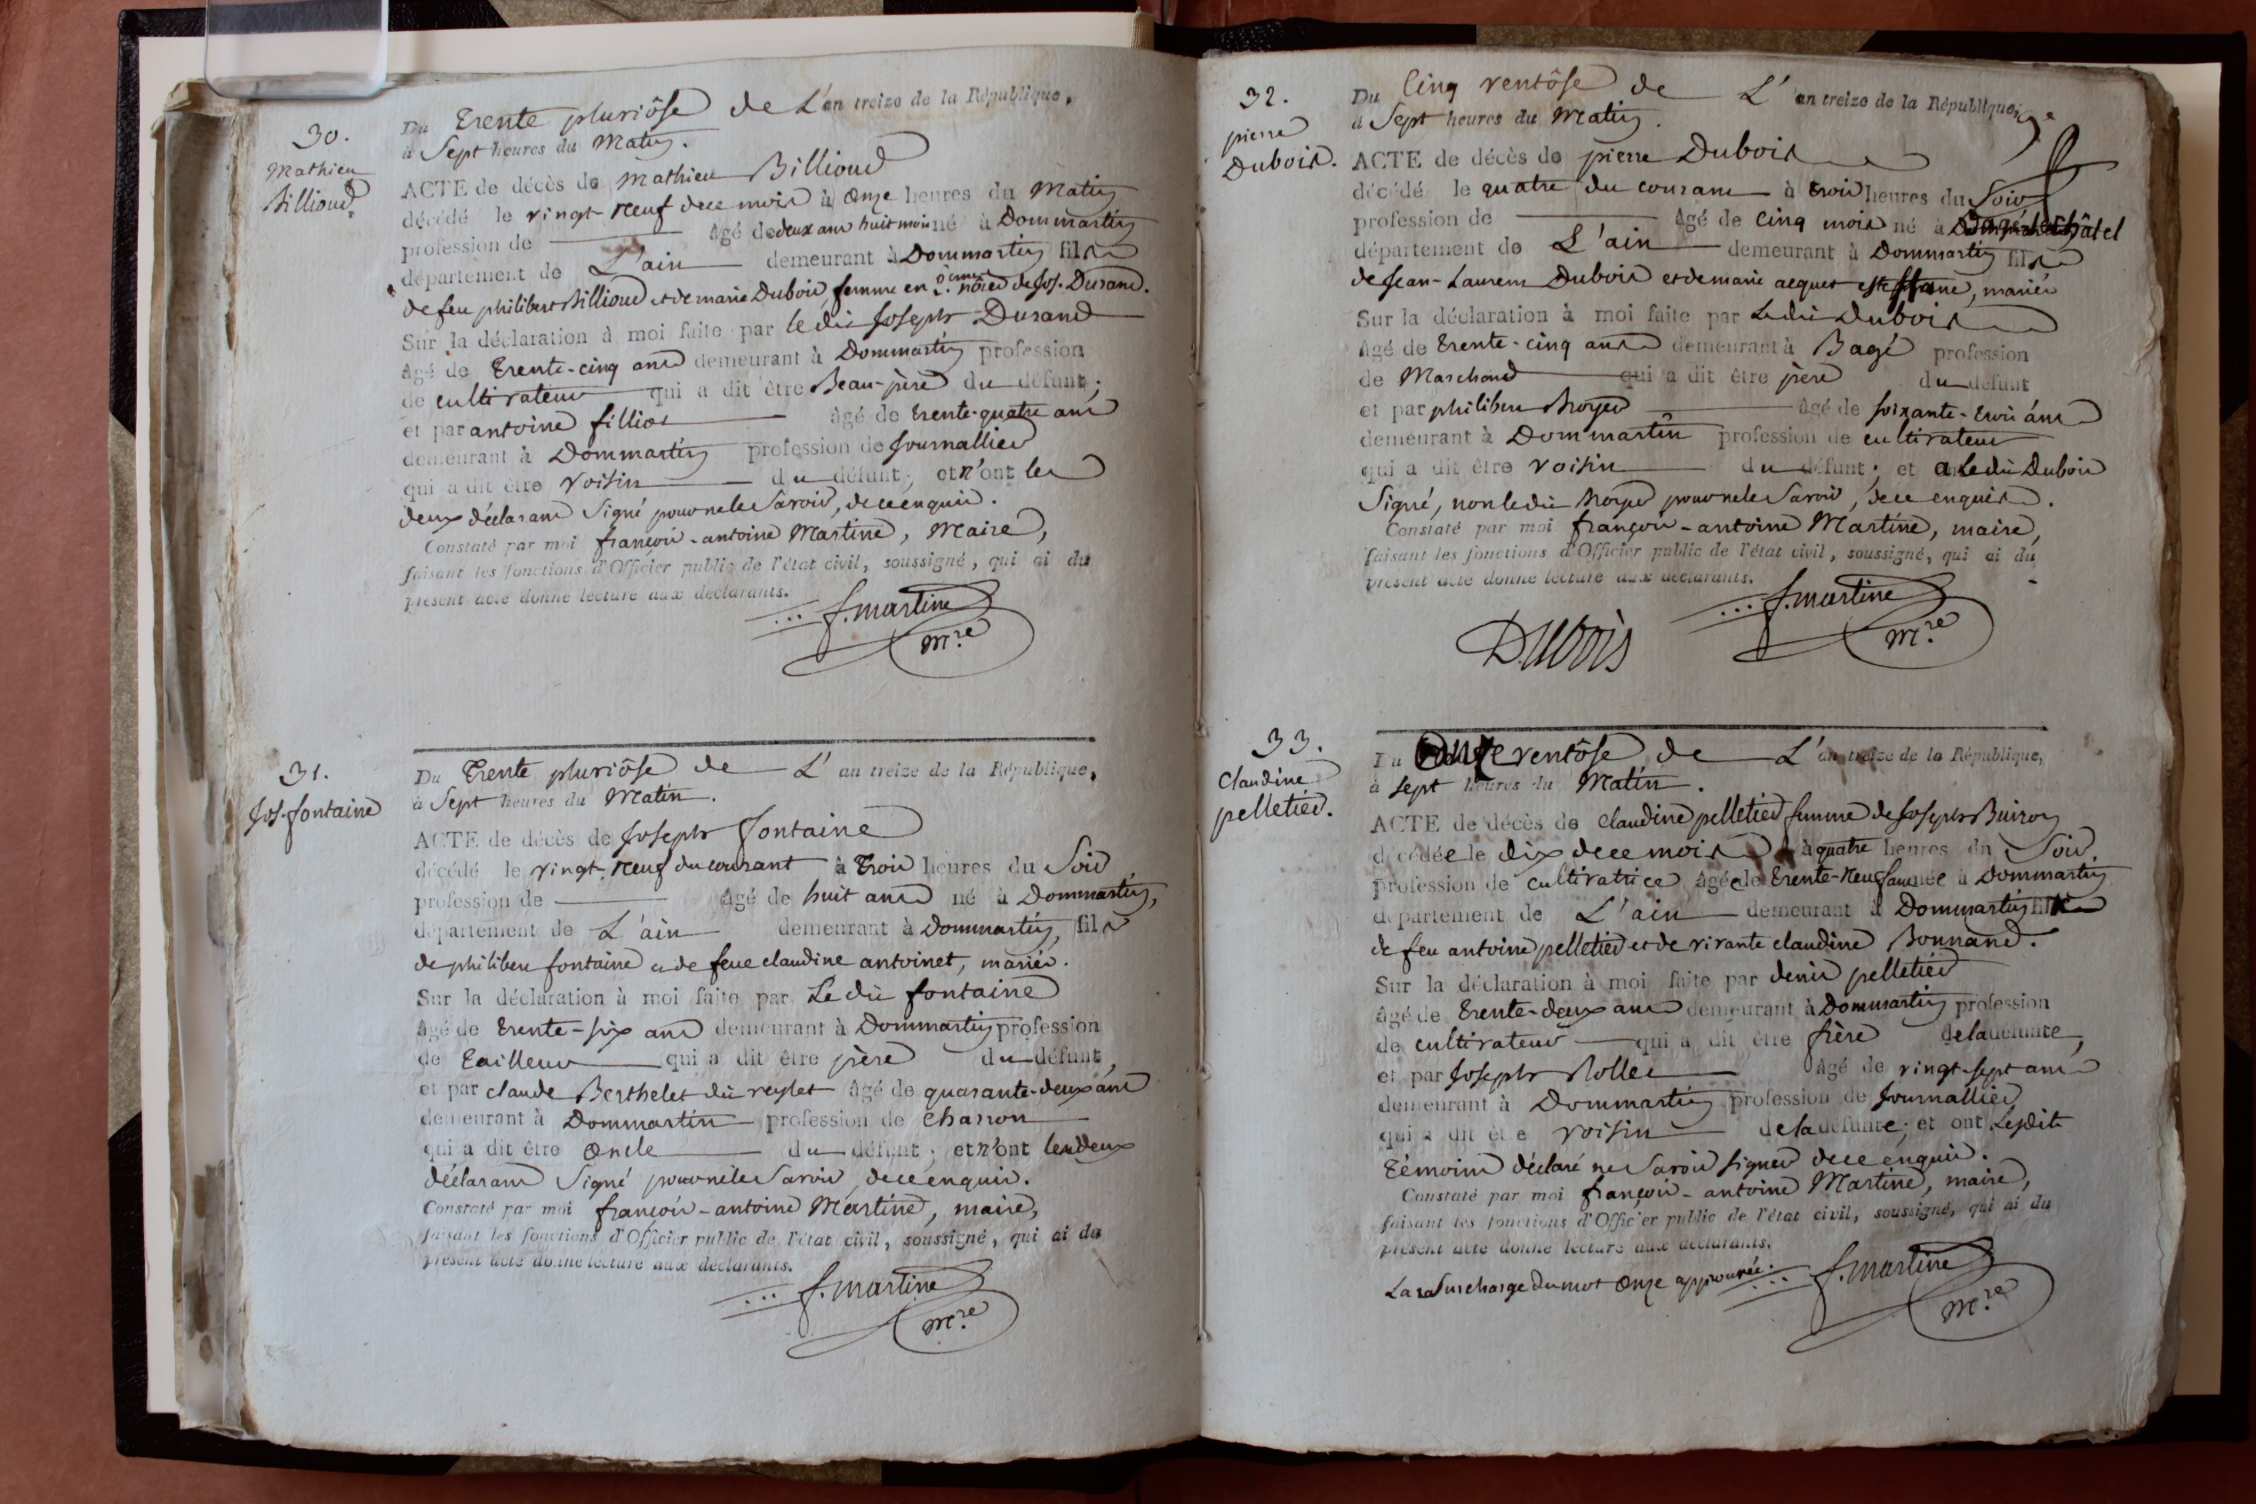 30.
Mathieu
Billioud.
Du Trente pluviôse de L'an treize de la République,
à Sept heures du Matin.
ACTE de décès de Mathieu Billioud
décédé le vingt-neuf de ce mois à onze heures du Matin
profession de âgé de deux ans huit mois né à Dommartin
département de L'ain demeurant à Dommartin fils
de feu philibert Billioud et de marie Dubois femme en 2.emes nôces de Jos. Durand.
Sur la déclaration à moi faite par le dit Joseph Durand
âgé de trente-cinq ans demeurant à Dommartin profession
de cultivateur qui a dit être Beau-père du défunt;
et par antoine fillion âgé de trente-quatre ans
demeurant à Dommartin profession de Journallier
qui a dit être voisin du défunt; et n'ont les
deux déclarans Signé pour ne le Savoir, de ce enquis.
Constaté par moi françois-antoine Martine, Maire,
faisant les fonctions d'Officier public de l'état civil, soussigné, qui ai du
présent acte donné lecture aux déclarants.
f. martine
M.re
31.
Jos. fontaine
Du Trente pluviôse de L'an treize de la République,
à Sept heures du Matin.
ACTE de décès de Joseph fontaine
décédé le vingt-neuf du courant à trois heures du Soir
profession de âgé de huit ans né à Dommartin,
département de L'ain demeurant à Dommartin, fils
de philibert fontaine et de feue claudine antoinet, mariés.
Sur la déclaration à moi faite par Le dit fontaine
âgé de trente-six ans demeurant à Dommartin profession
de tailleur qui a dit être père du défunt,
et par claude Berthelet dit reylet âgé de quarante-deux ans
demeurant à Dommartin profession de charron
qui a dit être oncle du défunt; et n'ont les deux
déclarans Signé pour ne le Savoir, de ce enquis.
Constaté par moi françois-antoine Martine, maire,
faisant les fonctions d'Officier public de l'état civil, soussigné, qui ai du
présent acte donné lecture aux déclarants.
f. martine
M.re
32.
pierre
Dubois.
Du Cinq ventôse de L'an treize de la République,
à Sept heures du Matin.
ACTE de décès de pierre Dubois
décédé le quatre du courant à trois heures du Soir
profession de âgé de cinq mois né à Bagé-le-Châtel
département de L'ain demeurant à Dommartin fils
de Jean-Laurent Dubois et de marie aequet mariés
Sur la déclaration à moi faite par Le dit Dubois
âgé de trente-cinq ans demeurant à Bagé profession
de Marchand qui a dit être père du défunt
et par philibert Moyer âgé de soixante-trois ans
demeurant à Dommartin profession de cultivateur
qui a dit être voisin du défunt; et a Le dit Dubois
Signé, non le dit Moyer pour ne le Savoir, de ce enquis.
Constaté par moi françois-antoine Martine, maire,
faisant les fonctions d'Officier public de l'état civil, soussigné, qui ai du
présent acte donné lecture aux déclarants.
f. martine
M.re
Dubois
33.
Claudine
pelletier.
Du Onze ventôse de L'an treize de la République,
à sept heures du Matin.
ACTE de décès de claudine pelletier femme de Joseph Buiron
décédée le dix de ce mois à quatre heures du Soir
profession de cultivatrice âgée de trente-neuf ans née à Dommartin
département de L'ain demeurant à Dommartin fille
de feu antoine pelletier et de vivante claudine Bonnand.
Sur la déclaration à moi faite par denis pelletier
âgé de trente-deux ans demeurant à Dommartin profession
de cultivateur qui a dit être frère de la défunte,
et par Joseph Rollet âgé de vingt-sept ans
demeurant à Dommartin profession de Journallier
qui a dit être voisin de la défunte; et ont Lesdits
témoins déclaré ne Savoir signer de ce enquis.
Constaté par moi françois-antoine Martine, maire,
faisant les fonctions d'Officier public de l'état civil, soussigné, qui ai du
présent acte donné lecture aux déclarants.
La surcharge du mot onze approuvée.
f. martine
M.re